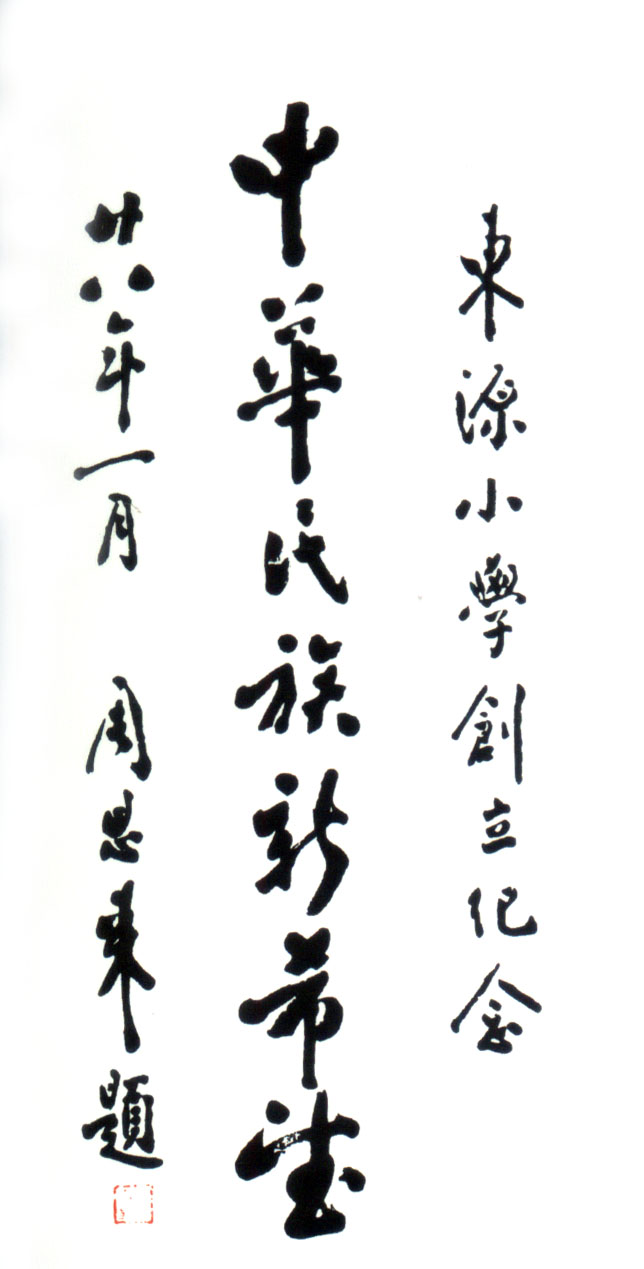 東源小學創立纪念
中華民族新希望
廿八年一月 周恩來題